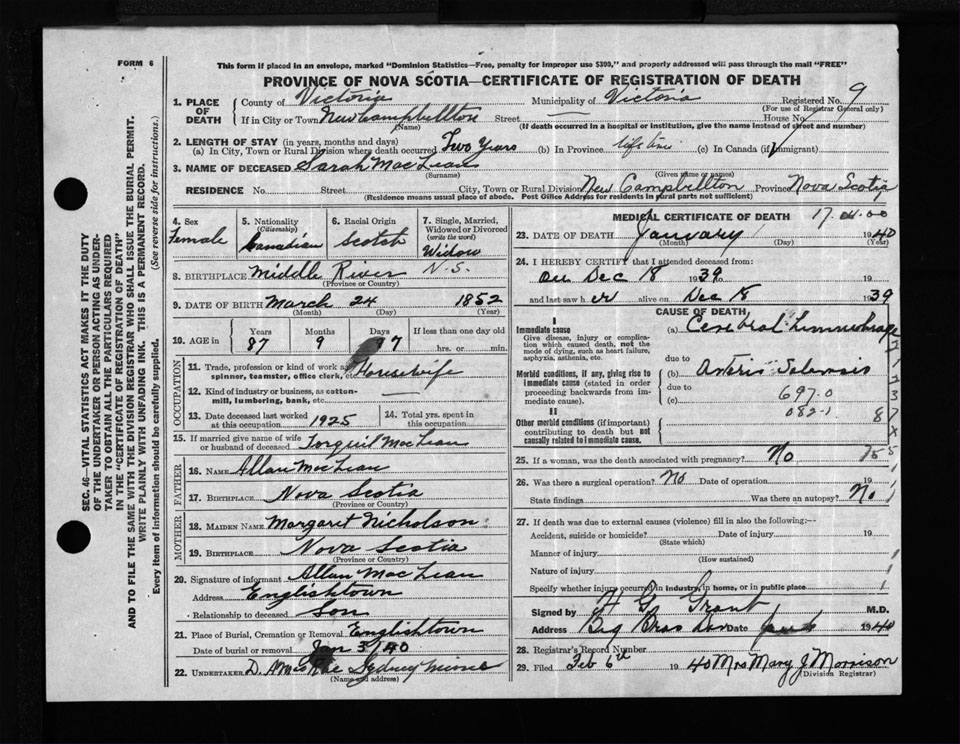 FORM 6
This form if placed in an envelope, marked "Dominion Statistics—Free, penalty for improper use $300, and properly addressed will pass through the mail "FREE"
PROVINCE OF NOVA SCOTIA—CERTIFICATE OF REGISTRATION OF DEATH
1. PLACE OF DEATH County of Victoria Municipality of Victoria Registered No. 9
(For use of Registrar General only)
If in City or Town New Campbellton Street House No.
(Name) (If death occurred in a hospital or institution, give the name instead of street and number)
2. LENGTH OF STAY (in years, months and days)
(a) In City, Town or Rural Division where death occurred Two Years (b) In Province life time (c) In Canada (if immigrant)
3. NAME OF DECEASED Sarah MacLean
(Surname) (Given name or names)
RESIDENCE No. Street City, Town or Rural Division New Campbellton Province Nova Scotia
(Residence means usual place of abode. Post Office Address for residents in rural parts not sufficient)
4. Sex Female
5. Nationality (Citizenship) Canadian
6. Racial Origin Scotch
7. Single, Married, Widowed or Divorced (write the word) Widow
8. BIRTHPLACE Middle River N.S.
(Province or Country)
9. DATE OF BIRTH March 24 1852
(Month) (Day) (Year)
10. AGE in Years 87 Months 9 Days 7 If less than one day old hrs. or min.
OCCUPATION
11. Trade, profession or kind of work as spinner, teamster, office clerk, etc. Housewife
12. Kind of industry or business, as cotton-mill, lumbering, bank, etc.
13. Date deceased last worked at this occupation 1925
14. Total yrs. spent in this occupation
15. If married give name of wife or husband of deceased Torquil MacLean
FATHER
16. NAME Allan MacLean
17. BIRTHPLACE Nova Scotia
(Province or Country)
MOTHER
18. MAIDEN NAME Margaret Nicholson
19. BIRTHPLACE Nova Scotia
(Province or Country)
20. Signature of informant Allan MacLean
Address Englishtown
Relationship to deceased Son
21. Place of Burial, Cremation or Removal Englishtown
Date of burial or removal Jan 3/40
22. UNDERTAKER Sydney Mines
(Name and address)
MEDICAL CERTIFICATE OF DEATH
23. DATE OF DEATH January 1 1940
(Month) (Day) (Year)
24. I HEREBY CERTIFY that I attended deceased from:
on Dec 18 1939 19
and last saw her alive on Dec 18 1939
CAUSE OF DEATH
I
Immediate cause
Give disease, injury or complication which caused death, not the mode of dying, such as heart failure, asphyxia, asthenia, etc.
(a) Cerebral
due to
Morbid conditions, if any, giving rise to immediate cause (stated in order proceeding backwards from immediate cause).
(b)
due to
(c) 697.0
082-1
8
II
Other morbid conditions (if important) contributing to death but not causally related to immediate cause.
25. If a woman, was the death associated with pregnancy? No
26. Was there a surgical operation? No Date of operation
State findings Was there an autopsy? No
27. If death was due to external causes (violence) fill in also the following:—
Accident, suicide or homicide? Date of injury 19
(State which)
Manner of injury
(How sustained)
Nature of injury
Specify whether injury occurred in industry, in home, or in public place
Signed by Grant M.D.
Address Big Bras Dor Date 1940
28. Registrar's Record Number
29. Filed Feb 6th 1940 Mrs Mary J Morrison
(Division Registrar)
SEC. 46—VITAL STATISTICS ACT MAKES IT THE DUTY
OF THE UNDERTAKER OR PERSON ACTING AS UNDER-
TAKER TO OBTAIN ALL THE PARTICULARS REQUIRED
IN THE "CERTIFICATE OF REGISTRATION OF DEATH"
AND TO FILE THE SAME WITH THE DIVISION REGISTRAR WHO SHALL ISSUE THE BURIAL PERMIT.
WRITE PLAINLY WITH UNFADING INK. THIS IS A PERMANENT RECORD.
Every item of Information should be carefully supplied. (See reverse side for instructions.)